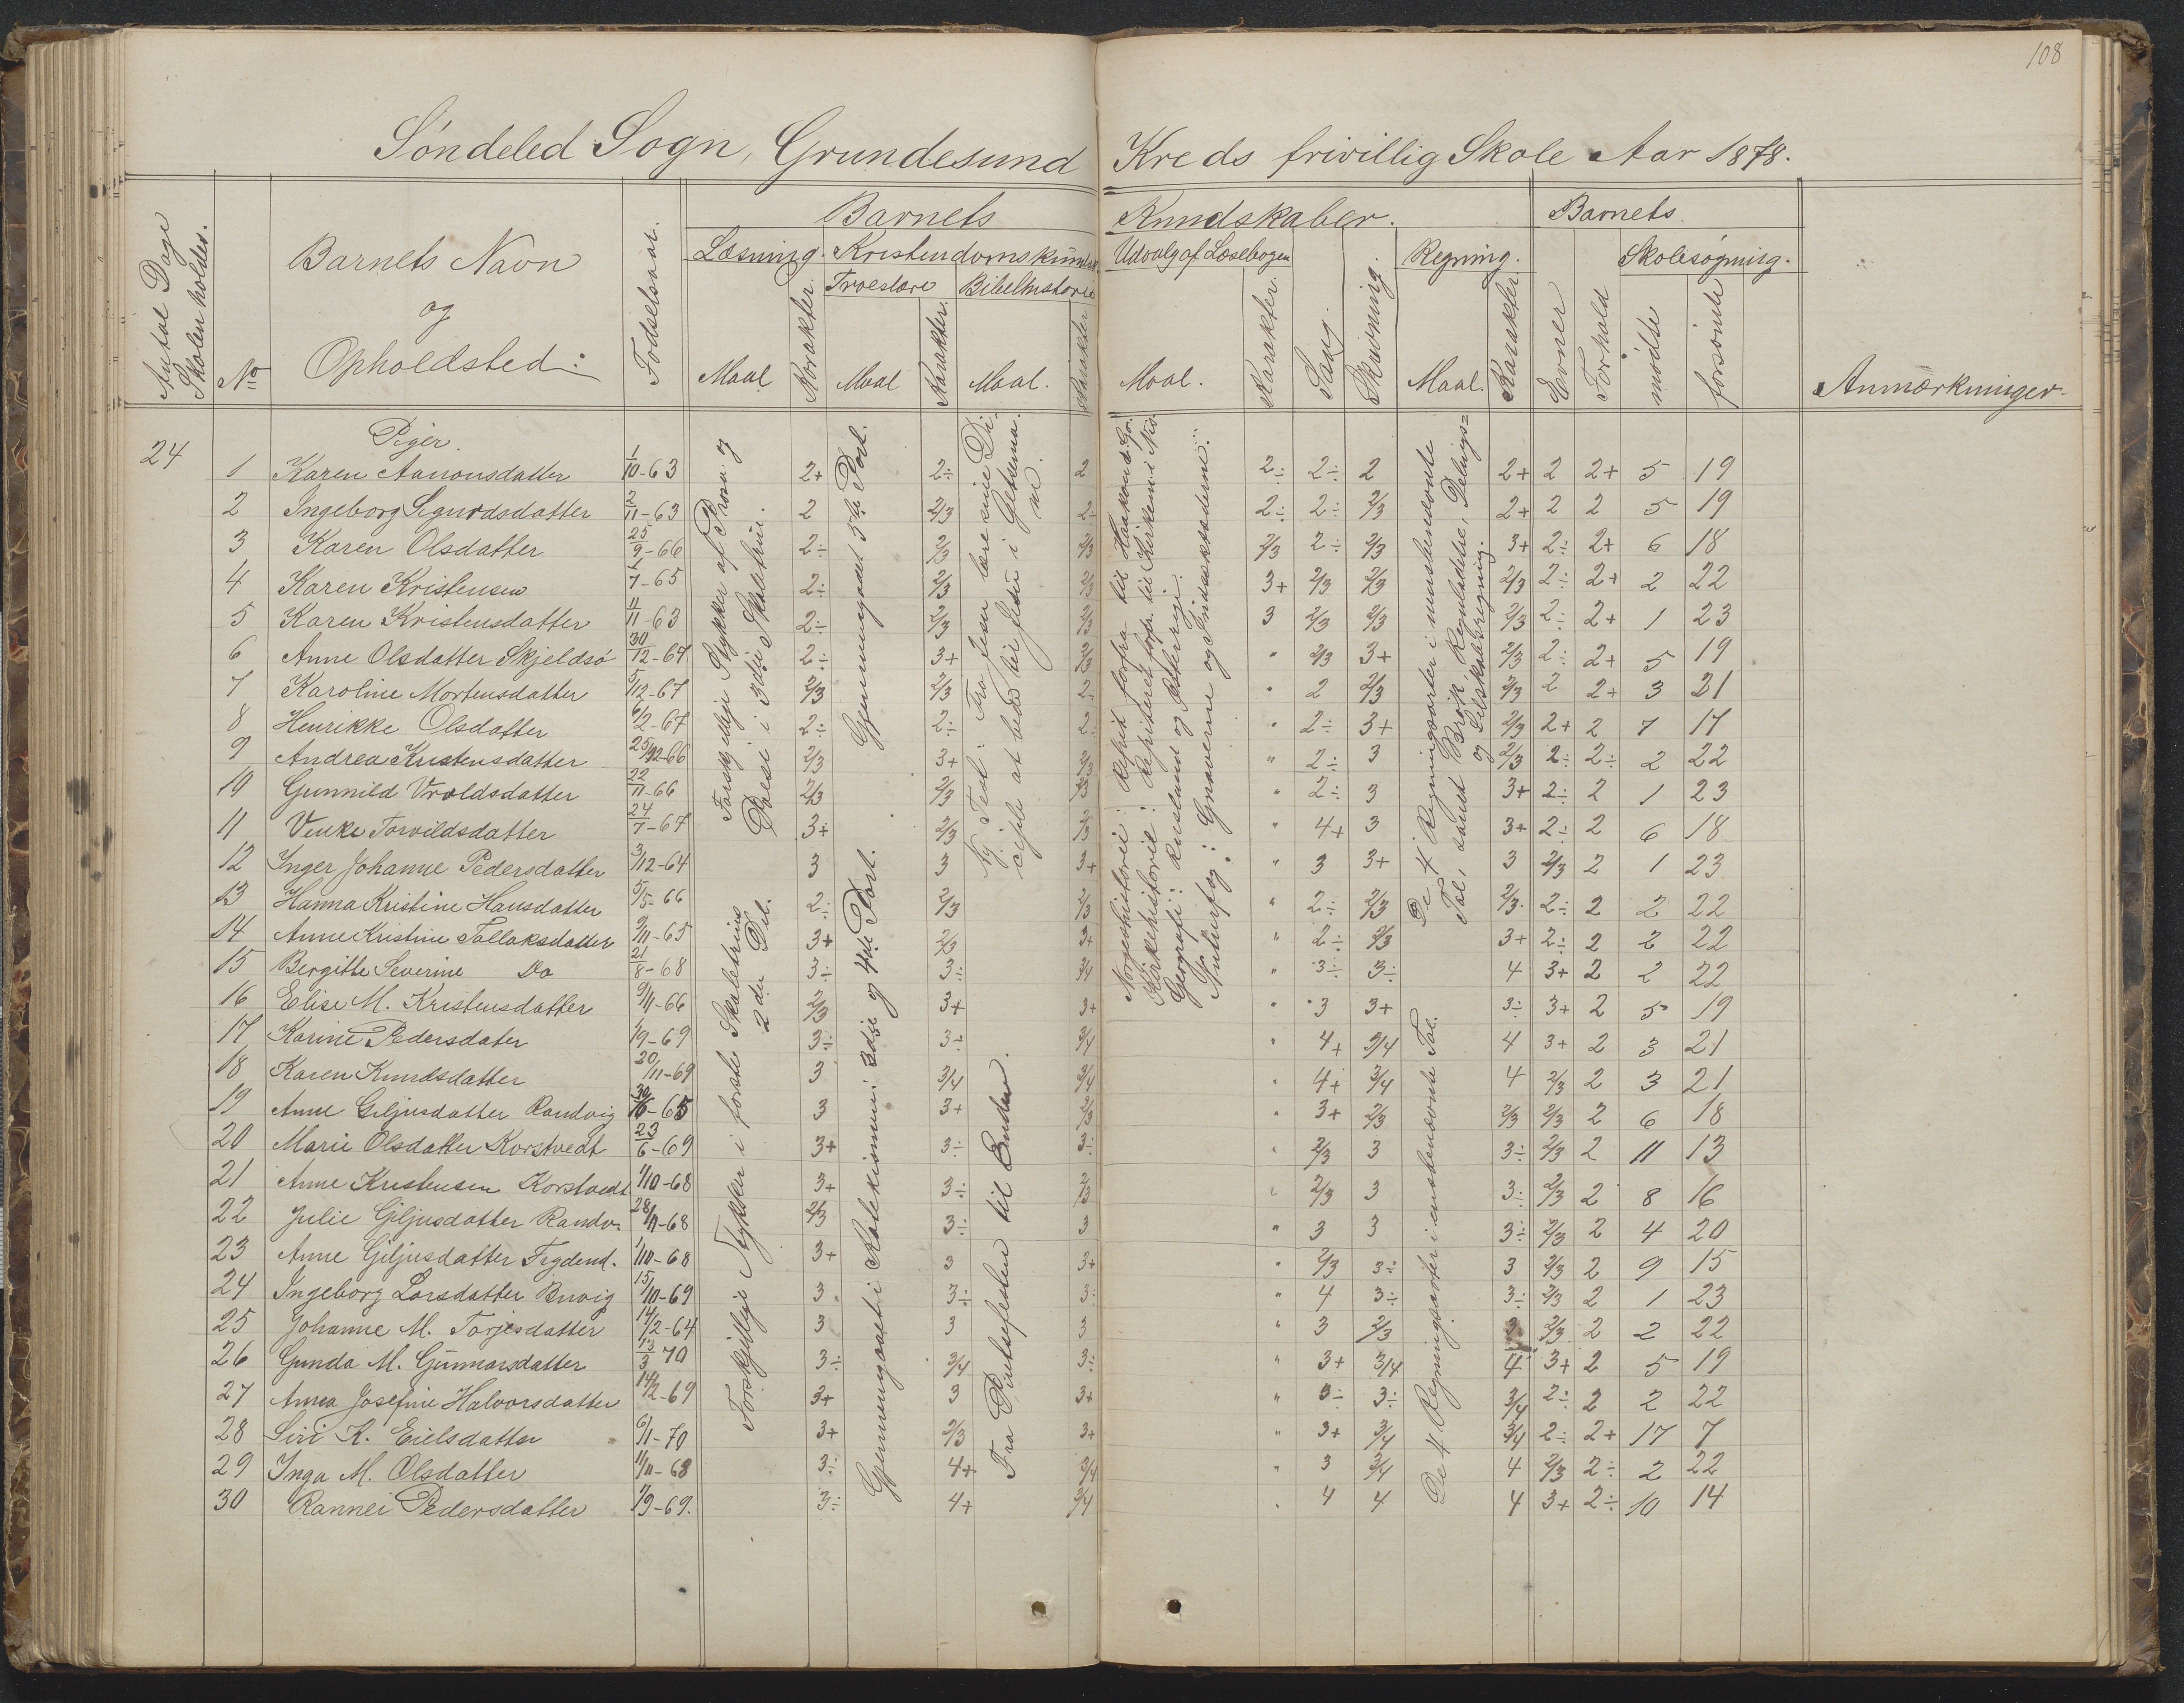 108
Søndeled Sogn, Grundesund Kreds frivillig Skole Aar 1878.
Antal Dage Skolen holdes.
No
Barnets Navn og Opholdsted:
Fødselsaar.
Barnets Kundskaber.
Barnets
Læsning. Kristendomskundsk. Udvalg af Læsebogen Regning. Skolesøgning.
Troeslære Bibelhistorie
Maal Karakter. Maal Karakter. Maal. Karakter Maal. Karakter. Sang. Skrivning. Maal. Karakter. Evner Forhold mødte forsømte Anmærkninger
24
Piger.
1 Karen Aanonsdatter 1/10-63 2+ 2÷ 2 2÷ 2÷ 2 2+ 2 2+ 5 19
2 Ingeborg Sigurdsdatter 2/11-63 2 2/3 2÷ 2÷ 2÷ 2/3 2+ 2 2 5 19
3 Karen Olsdatter 25/9-66 2÷ 2/3 2/3 2/3 2÷ 2/3 3+ 2÷ 2+ 6 18
4 Karen Kristensen 1/7-65 2÷ 2/3 2/3 3+ 2/3 2/3 2/3 2÷ 2+ 2 22
5 Karen Kristensdatter 4/11-63 2÷ 2/3 2/3 3 2/3 2/3 2/3 2÷ 2+ 1 23
6 Anne Olsdatter Skjeldsø 30/12-67 2÷ 3+ 2/3 " 2/3 3+ 2/3 2÷ 2+ 5 19
7 Karoline Mortensdatter 5/12-67 2/3 2/3 2÷ " 2 2/3 2/3 2 2+ 3 21
8 Henrikke Olsdatter 6/2-67 2÷ 2÷ 2÷ " 2÷ 3+ 2/3 2+ 2 7 17
9 Andrea Kristensdatter 25/12-66 2/3 3+ 2/3 " 2÷ 3 2/3 2÷ 2÷ 2 22
10 Gunnild Vroldsdatter 22/11-66 2/3 2/3 2/3 " 2÷ 3 3+ 2÷ 2 1 23
11 Venke Torvildsdatter 24/7-67 3+ 2/3 2/3 " 4+ 3 3+ 2÷ 2 6 18
12 Inger Johanne Pedersdatter 3/12-64 3 3 3+ " 3 3+ 3 2/3 2 1 23
13 Hanna Kristine Hansdatter 5/5-66 2÷ 2/3 2/3 " 2÷ 2/3 2/3 2÷ 2 2 22
14 Anne Kristine Tallaksdatter 9/11-65 3+ 2/3 3+ " 2÷ 2/3 3+ 2÷ 2 2 22
15 Bergitte Severine Do 21/8-68 3÷ 3÷ 3/4 " 3÷ 3÷ 4 3+ 2 2 22
16 Elise M. Kristensdatter 9/11-66 2/3 3+ 3+ " 3 3+ 3÷ 3+ 2 5 19
17 Karine Pedersdater 1/9-69 3÷ 3÷ 3/4 " 4+ 3/4 4 3+ 2 3 21
18 Karen Knudsdatter 20/11-69 3 3/4 3/4 " 4+ 3/4 4 2/3 2 3 21
19 Anne Giljusdatter Randvig 30/10-65 3 3+ 2/3 " 3+ 2/3 2/3 2/3 2 6 18
20 Marie Olsdatter Korstvedt 23/6-69 3+ 3÷ 3÷ " 2/3 3 3÷ 2/3 2 11 13
21 Anne Kristensen Korstvedt 1/10-68 3+ 3÷ 2/3 " 2/3 3 3÷ 2/3 2 8 16
22 Julie Giljusdatter Randv. 28/11-68 2/3 3÷ 3 " 3 3 3÷ 2/3 2 4 20
23 Anne Giljusdatter 1/10-68 3+ 3 3+ " 2/3 3÷ 3 2/3 2 9 15
24 Ingeborg Larsdatter Buvig 15/10-69 3 3÷ 3÷ " 4 3÷ 3÷ 2/3 2 1 23
25 Johanne M. Torjesdatter 14/2-64 3 3 3 " 3 2/3 3 2/3 2 2 22
26 Gunda M. Gunnarsdatter 13/3 70 3÷ 3/4 3÷ " 3+ 3/4 4 3+ 2 5 19
27 Anna Josefine Halvorsdatter 14/2-69 3+ 3 3+ " 3÷ 3÷ 3/4 2÷ 2 2 22
28 Siri K. Eielsdatter 6/1-70 3+ 2/3 3+ " 3+ 3/4 3/4 2÷ 2+ 17 7
29 Inga M. Olsdatter 11/11-68 3÷ 4+ 3/4 " 3 3/4 4 2/3 2÷ 2 22
30 Rannei Pedersdatter 1/9-69. 3÷ 4+ 3/4 4 4 4 3+ 2÷ 10 14
Forskjellige Stykker af Prosa og
Poesi i 3die Skoletrin.
Forskjellige Stykker i første Skoletrins
2den Del.
Gjennemgaaet 5te Part.
Gjennemgaaet i Katekismus: 3die og 4de Part.
Ny Test: Fra Jesu lære sine Di-
ciple at bede til Jesus i Getsema-
ne.
Fra Pintsefesten til Enden.
Norgeshistorie: Repit. forfra til Haakon d. Go.
Kirkehistorie: Repiteret forfr. til Kirken i
Geografi: Rusland og Østerrige.
Af Naturfag: Gnaverne og Indsektæderne.
De 4 Regningsarter i uensbenævnte
Tal, samt Brøk, Reguladetri, Delings=
og Selskabsregning.
De 4 Regningsarter i ensbenævnte Tal.